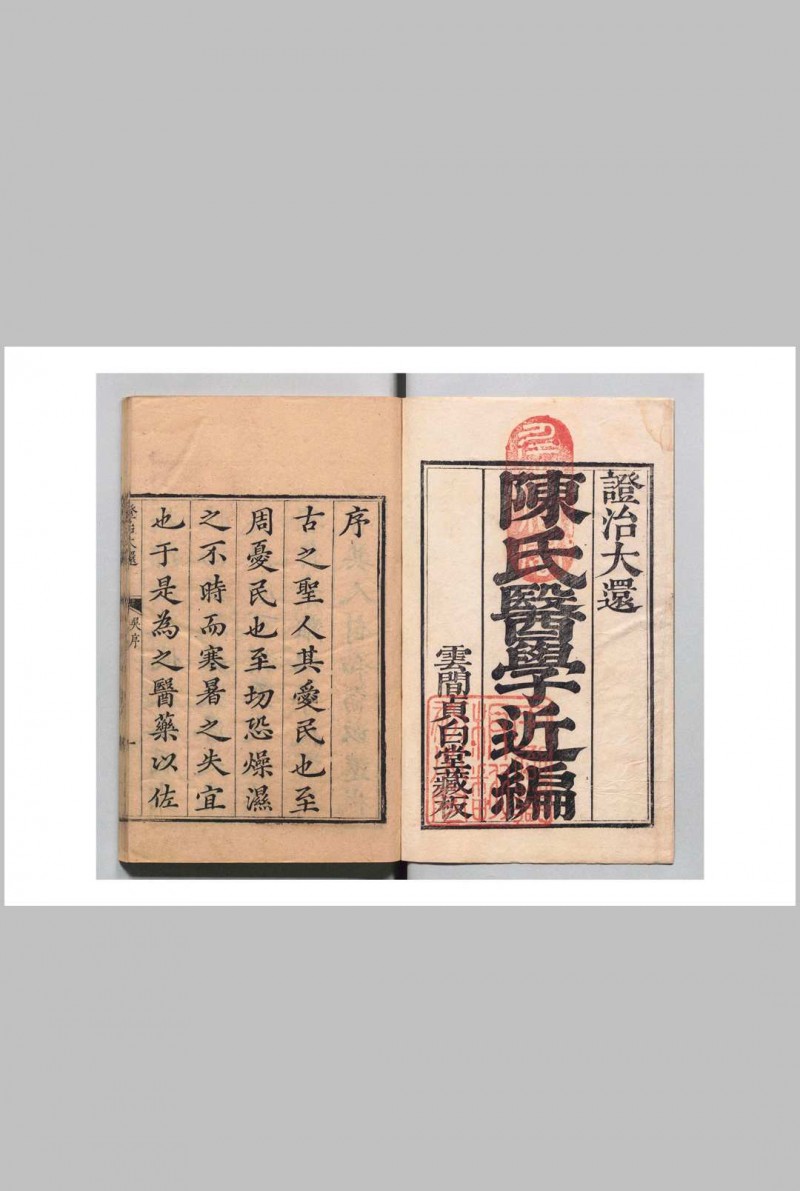 證治大還
陳氏醫學近編
雲間貞白堂藏板
序
古之聖人其愛民也至
周憂民也至切恐燥濕
之不時而寒暑之失宜
也于是為之醫藥以佐
證治大還
吳序
一